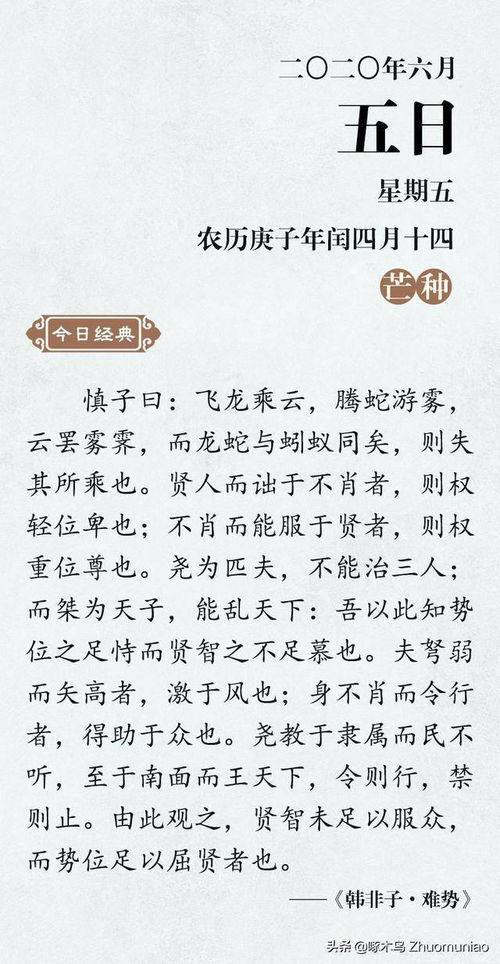 二〇二〇年六月
五日
星期五
农历庚子年闰四月十四
芒种
今日经典
慎子曰：飞龙乘云，腾蛇游雾，
云罢雾霁，而龙蛇与蚓蚁同矣，则失
其所乘也。贤人而诎于不肖者，则权
轻位卑也；不肖而能服于贤者，则权
重位尊也。尧为匹夫，不能治三人；
而桀为天子，能乱天下：吾以此知势
位之足恃而贤智之不足慕也。夫弩弱
而矢高者，激于风也；身不肖而令行
者，得助于众也。尧教于隶属而民不
听，至于南面而王天下，令则行，禁
则止。由此观之，贤智未足以服众，
而势位足以屈贤者也。
——《韩非子·难势》
头条 @啄木鸟 Zhuomuniao